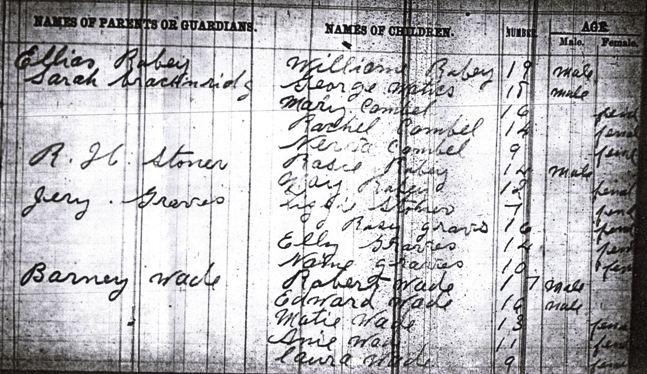 NAMES OF PARENTS OR GUARDIANS. NAMES OF CHILDREN. NUMBER AGE
Male. Female.
Ellias Rabey Williame Rabey 19 male
Sarah George 15 male
Mary Combel 16 femal
Rachel Combel 14 femal
Combel 9 femal
R. H. Stoner Rabey 14 male
Mary Rabey 12 femal
Stoner 7 femal
Jery. Graves Rosey graves 16 femal
Elly Graves 14 femal
Name graves 10 fem
Barney Wade Robert Wade 17 male
Edward Wade 16 male
Matie Wade 13 femal
Anie Wade 11 femal
Laura Wade 9 femal